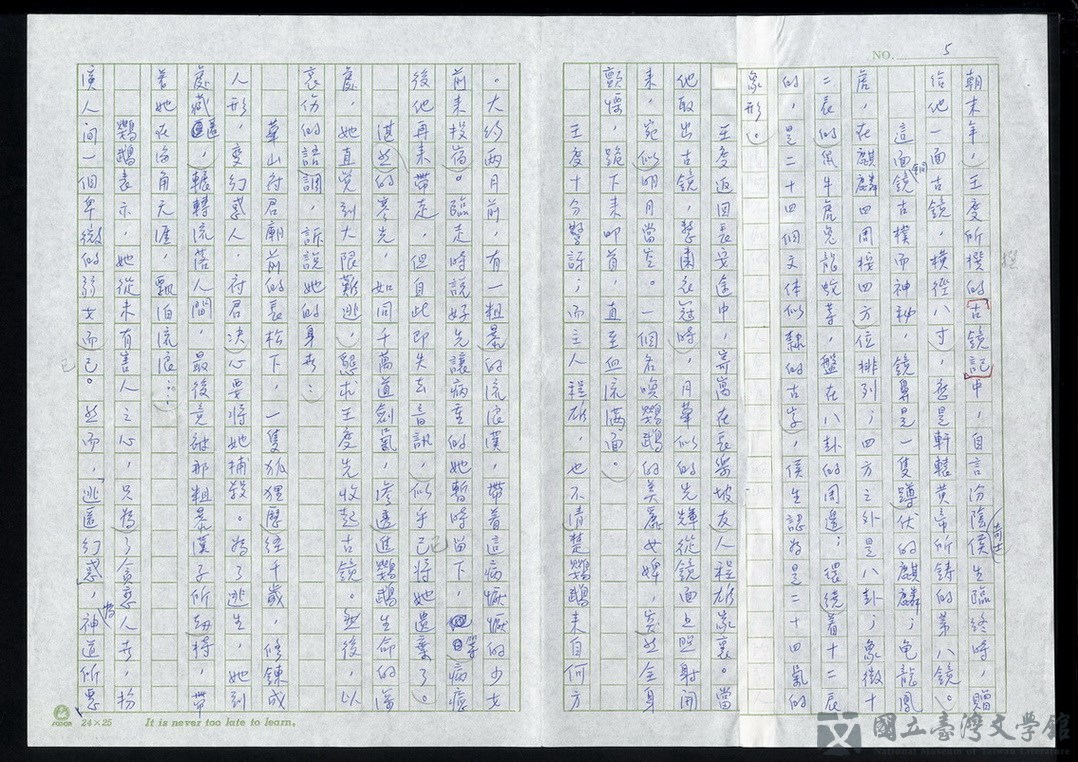 NO. 5
朝末年，王度所撰的古鏡記中，自言汾陰侯生臨終時，贈
奇士
撰
給他一面古鏡，橫徑八寸，應是軒轅黃帝所鑄的第八鏡。
這面銅鏡古樸而神祕，鏡鼻是一隻蹲伏的麒麟；龜龍鳳
虎，在麒麟四周按四方位排列；四方之外是八卦；象徵十
二辰的鼠牛虎兔龍蛇等，盤在八卦的周邊；環繞着十二辰
的，是二十四個文体似隸的古字，侯生認為是二十四氣的
象形。
王度返回長安途中，寄寓在長樂坡友人程雄家裏。當
他取出古鏡，整肅衣冠時，月華似的光輝從鏡面上照射開
來，宛似明月當空。一個名喚鸚鵡的美麗女婢，突然全身
顫慄，跪下來叩首，直至血流滿面。
王度十分驚訝；而主人程雄，也不清楚鸚鵡來自何方
。大約兩月前，有一粗暴的流浪漢，帶着這病懨懨的少女
前來投宿。臨走時說好先讓病重的她暫時留下，等病癒
後他再來帶走，但自此即失去音訊，似乎已將她遺棄了。
湛然的寒光，如同千萬道劍氣，滲透進鸚鵡生命的深
處，她直覺到大限難逃，懇求王度先收起古鏡。然後，以
哀傷的語調，訴說她的身世：
華山府君廟前的長松下，一隻狐狸歷經千歲，修鍊成
人形，變幻惑人，府君決心要將她捕殺。為了逃生，她到
處藏匿，輾轉流落人間，最後竟被那粗暴漢子所劫持，帶
着她在海角天涯，飄泊流浪……
鸚鵡表示，她從未有害人之心，只為了貪戀人世，扮
演人間一個卑微的弱女而已。然而，「逃匿幻惑，為神道所惡
已
24×25
It is never too late to learn.
國立臺灣文學館
National Museum of Taiwan Literature